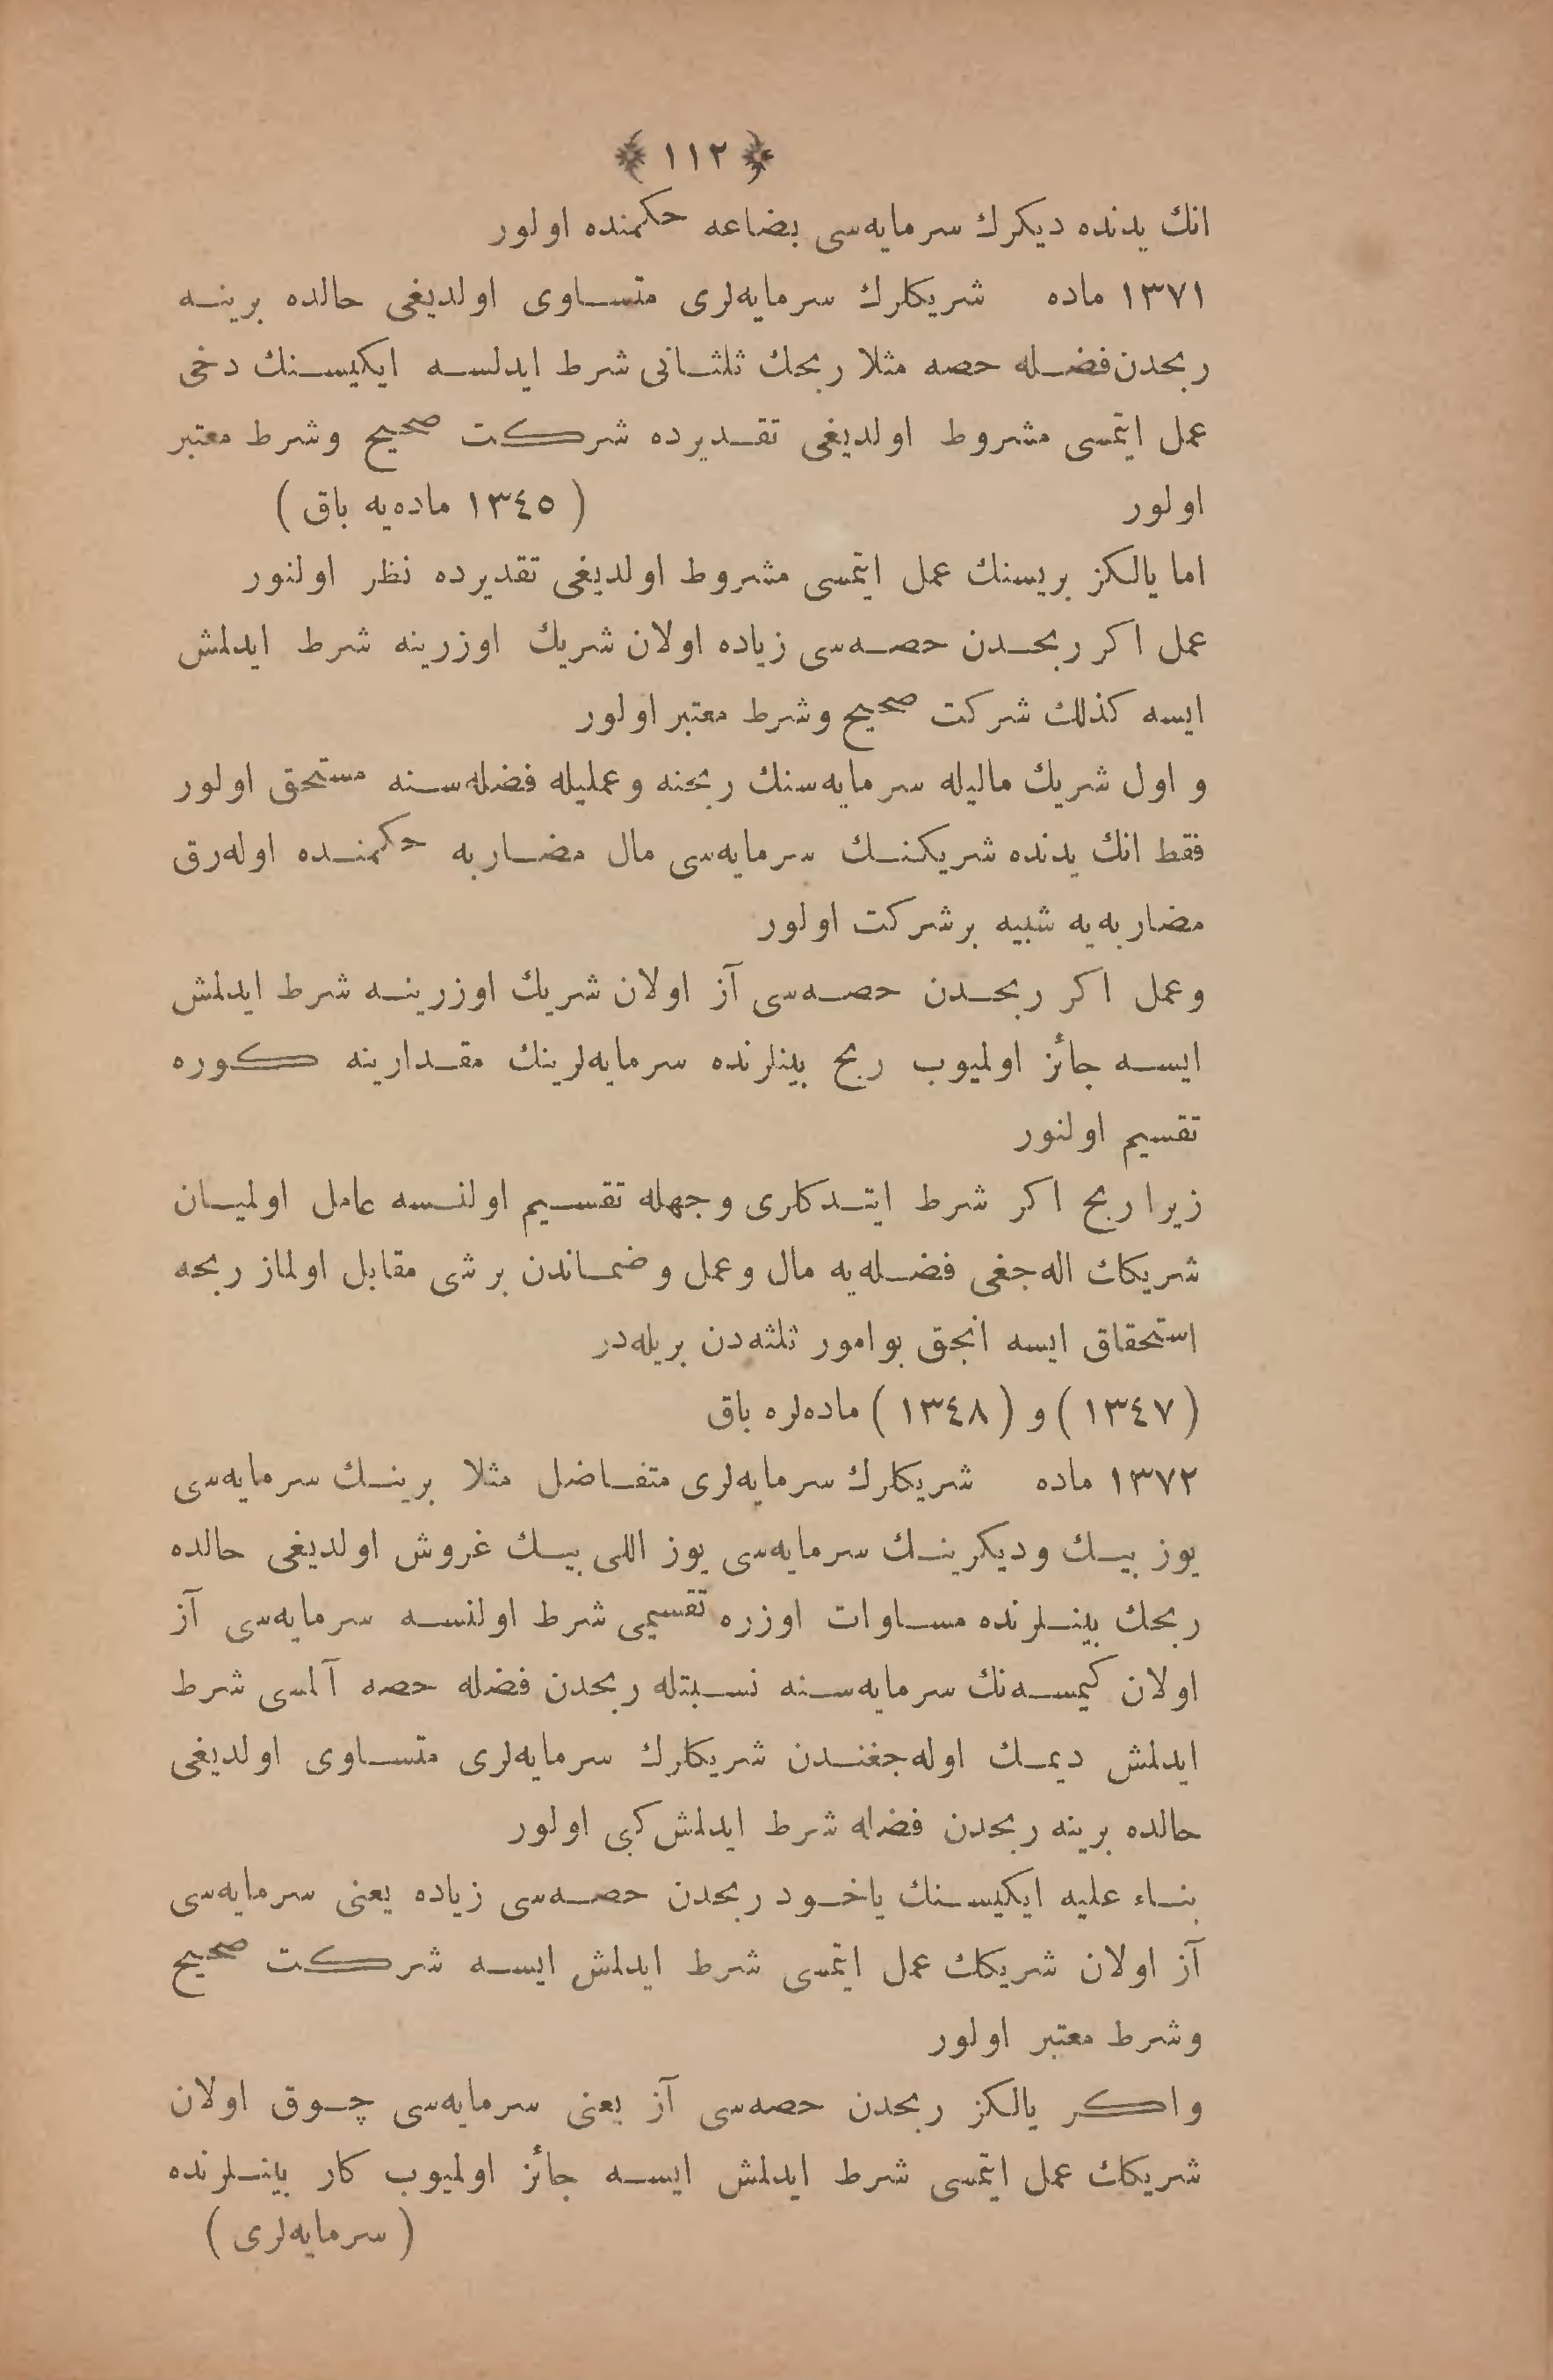 ﴿ ١١٢ ﴾
انك يدنده ديكرك سرمايه‌سى بضاعه حكمنده اولور
١٣٧١ ماده شريكلرك سرمايه‌لرى متساوى اولديغى حالده برينه
ربحدن فضله حصه مثلا ربحك ثلثانى شرط ايدلسه ايكيسنك دخى
عمل ايتمسى مشروط اولديغى تقديرده شركت صحيح وشرط معتبر
اولور ( ١٣٤٥ ماده‌يه باق )
اما يالكز بريسنك عمل ايتمسى مشروط اولديغى تقديرده نظر اولنور
عمل اكر ربحدن حصه‌سى زياده اولان شريك اوزرينه شرط ايدلمش
ايسه كذلك شركت صحيح وشرط معتبر اولور
و اول شريك ماليله سرمايه‌سنك ربحنه وعمليله فضله‌سنه مستحق اولور
فقط انك يدنده شريكنك سرمايه‌سى مال مضاربه حكمنده اوله‌رق
مضاربه‌يه شبيه برشركت اولور
وعمل اكر ربحدن حصه‌سى آز اولان شريك اوزرينه شرط ايدلمش
ايسه جائز اولميوب ربح بينلرنده سرمايه‌لرينك مقدارينه كوره
تقسيم اولنور
زيرا ربح اكر شرط ايتدكلرى وجهله تقسيم اولنسه عامل اولميان
شريكك اله‌جغى فضله‌يه مال وعمل وضماندن برشى مقابل اولماز ربحه
استحقاق ايسه انجق بوامور ثلثه‌دن بريله‌در
( ١٣٤٧ ) و ( ١٣٤٨ ) ماده‌لره باق
١٣٧٢ ماده شريكلرك سرمايه‌لرى متفاضل مثلا برينك سرمايه‌سى
يوز بيك وديكرينك سرمايه‌سى يوز اللى بيك غروش اولديغى حالده
ربحك بينلرنده مساوات اوزره تقسيمى شرط اولنسه سرمايه‌سى آز
اولان كيمسه‌نك سرمايه‌سنه نسبتله ربحدن فضله حصه آلمسى شرط
ايدلمش ديمك اوله‌جغندن شريكلرك سرمايه‌لرى متساوى اولديغى
حالده برينه ربحدن فضله شرط ايدلمش كبى اولور
بناء عليه ايكيسنك ياخود ربحدن حصه‌سى زياده يعنى سرمايه‌سى
آز اولان شريكك عمل ايتمسى شرط ايدلمش ايسه شركت صحيح
وشرط معتبر اولور
واكر يالكز ربحدن حصه‌سى آز يعنى سرمايه‌سى چوق اولان
شريكك عمل ايتمسى شرط ايدلمش ايسه جائز اولميوب كار بينلرنده
( سرمايه‌لرى )